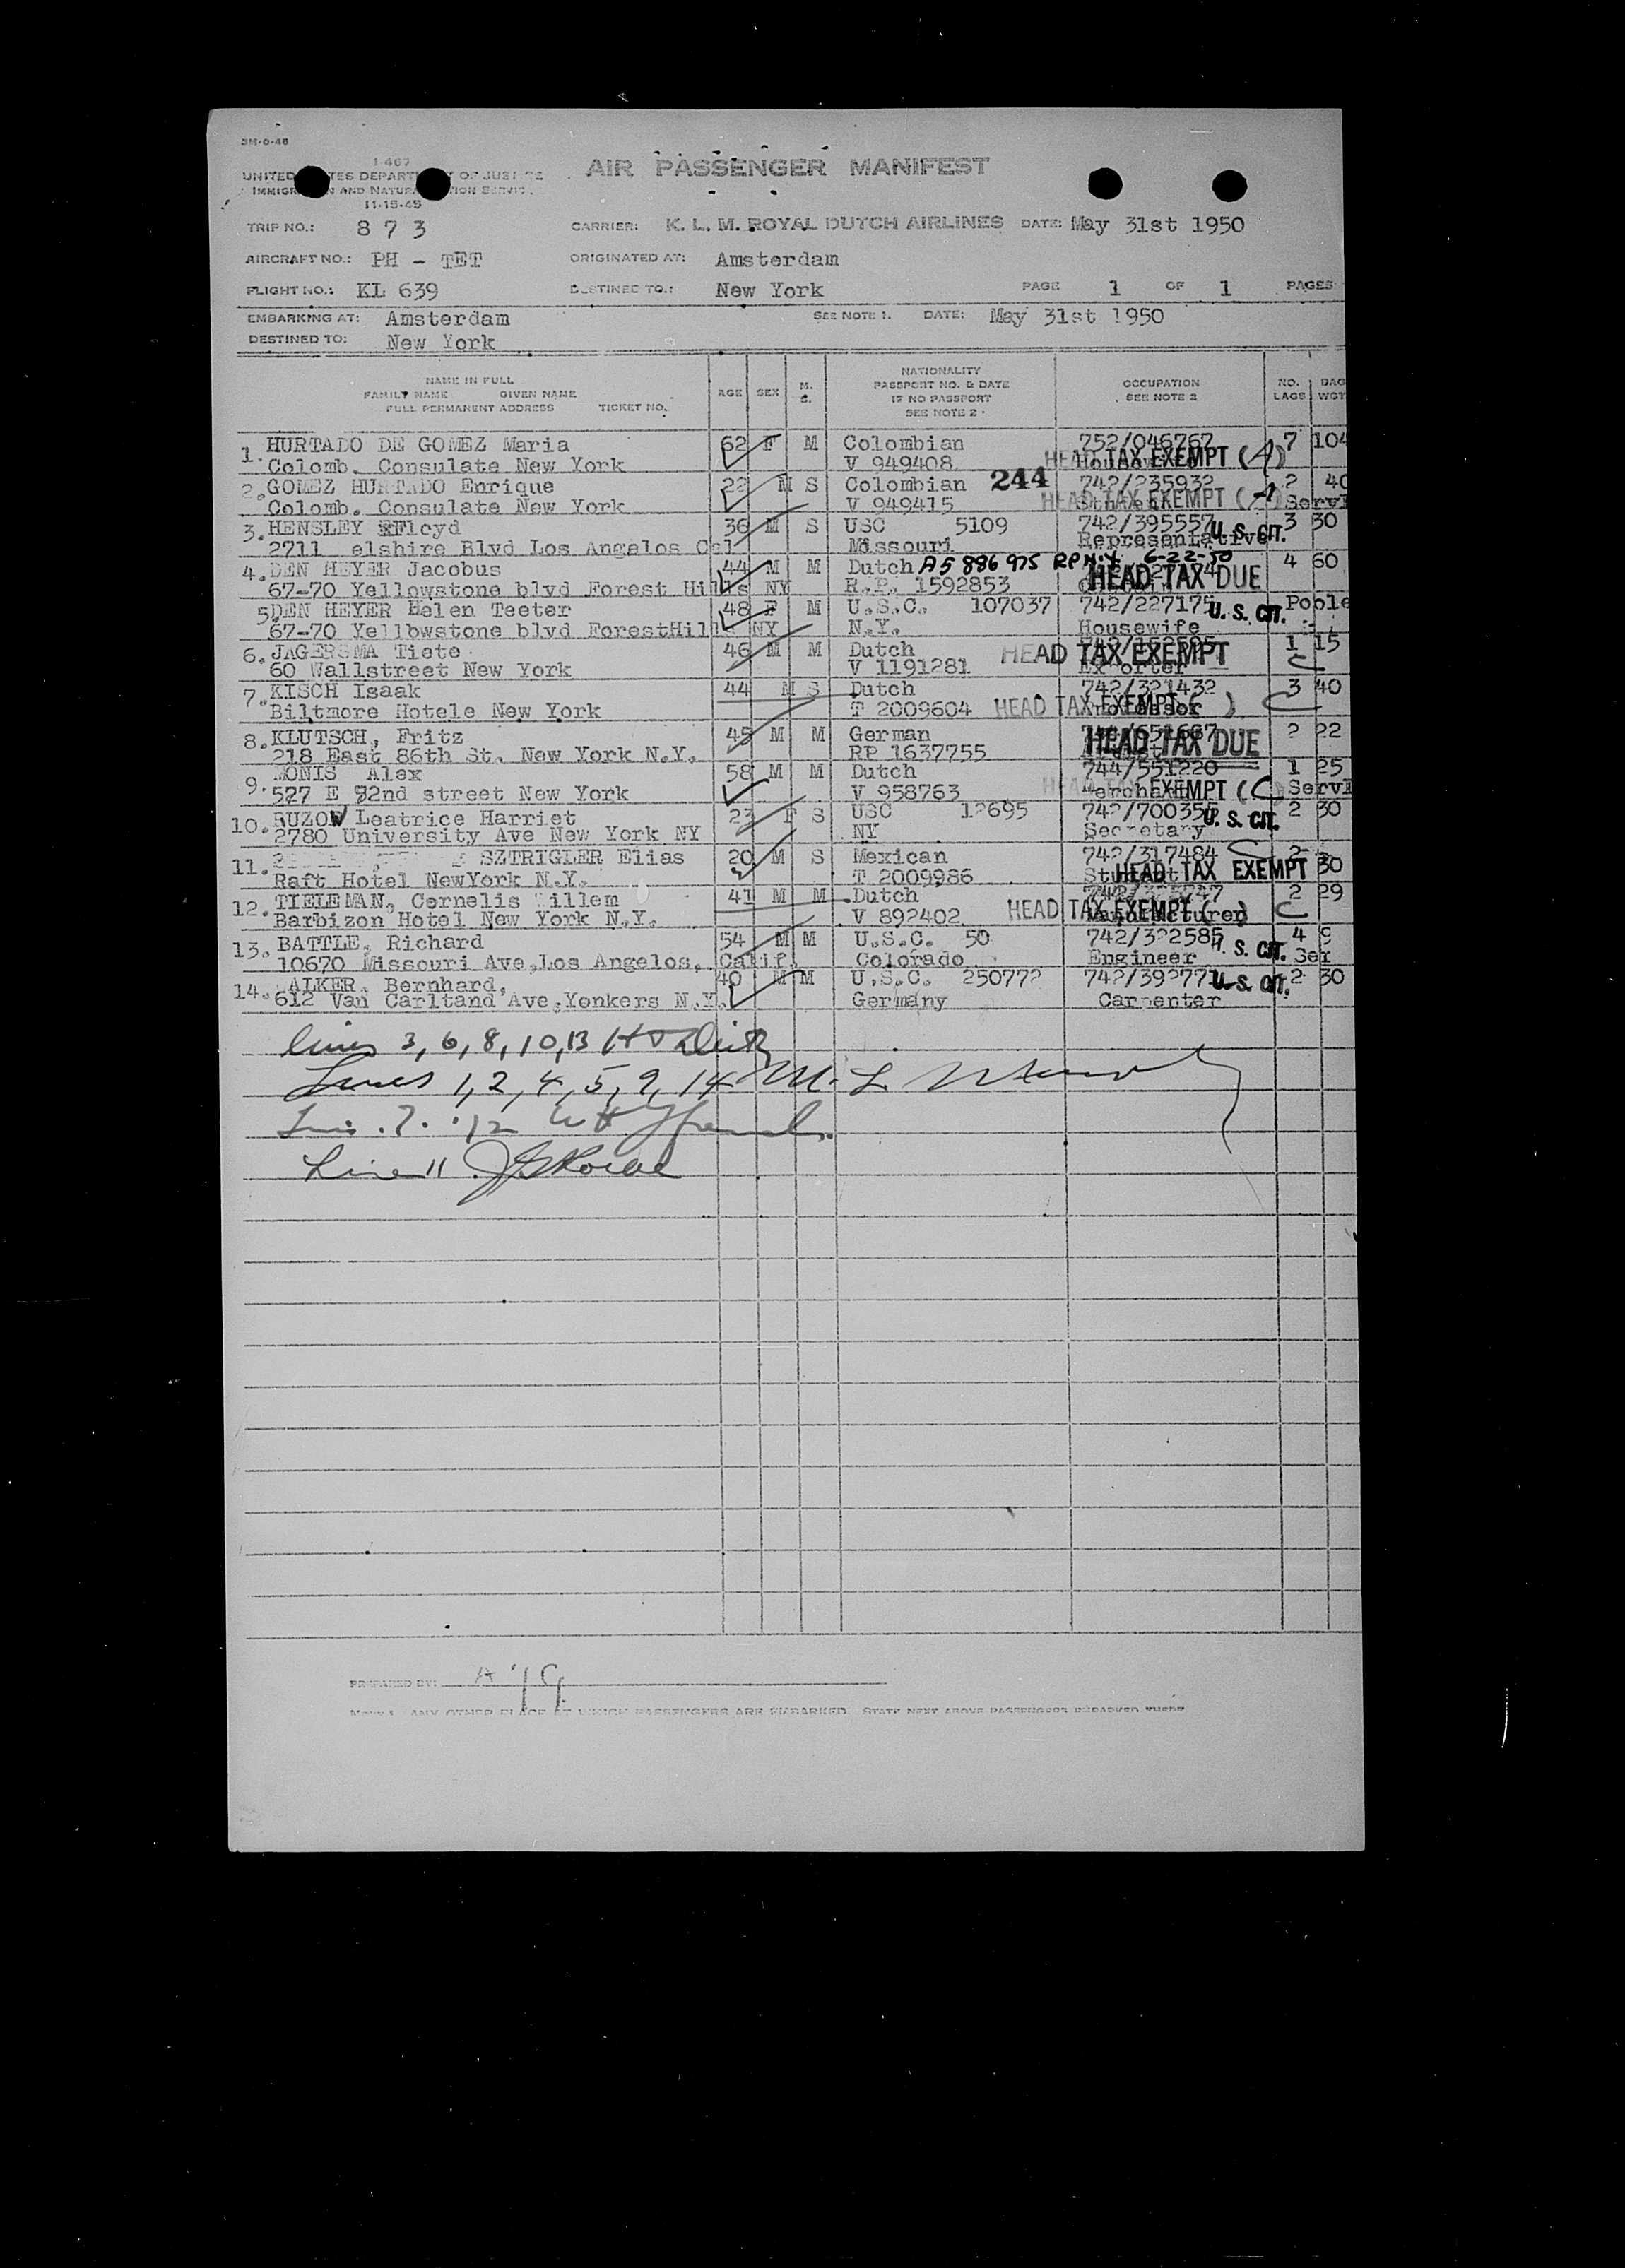 1-467
UNITED TES DEPART OF JUSTICE
IMMIGR N AND NATURA TION SERVICE
11-15-45
AIR PASSENGER MANIFEST
TRIP NO.: 873 CARRIER: K. L. M. ROYAL DUTCH AIRLINES DATE: May 31st 1950
AIRCRAFT NO.: PH - TET ORIGINATED AT: Amsterdam
FLIGHT NO.: KL 639 DESTINED TO.: New York PAGE 1 OF 1 PAGES
EMBARKING AT: Amsterdam SEE NOTE 1. DATE: May 31st 1950
DESTINED TO: New York
NAME IN FULL
FAMILY NAME GIVEN NAME
FULL PERMANENT ADDRESS TICKET NO.
AGE SEX M. S.
NATIONALITY
PASSPORT NO. & DATE
IF NO PASSPORT
SEE NOTE 2
OCCUPATION
SEE NOTE 2
NO. LAGS BAG WGT
1. HURTADO DE GOMEZ Maria 62 F M Colombian 752/046767 7 104
Colomb. Consulate New York V 949408 HEAD TAX EXEMPT (A)
2. GOMEZ HURTADO Enrique 22 M S Colombian 244 742/235932 2 40
Colomb. Consulate New York V 949415 HEAD TAX EXEMPT Servi
3. HENSLEY Floyd 36 M S USC 5109 742/395557 U. S. CIT. 3 30
2711 elshire Blvd Los Angalos Cal Missouri Representative
4. DEN HEYER Jacobus 44 M M Dutch A5 886 975 RP N.Y. 6-22-50 4 60
67-70 Yellowstone blvd Forest Hills NY R.P. 1592853 HEAD TAX DUE
5. DEN HEYER Helen Teeter 48 F M U.S.C. 107037 742/227175 U. S. CIT. Poole
67-70 Yellbwstone blvd ForestHills NY N.Y. Housewife
6. JAGERSMA Tiete 46 M M Dutch 1 15
60 Wallstreet New York V 1191281 HEAD TAX EXEMPT Exporter C
7. KISCH Isaak 44 M S Dutch 742/321432 3 40
Biltmore Hotele New York T 2009604 HEAD TAX EXEMPT ( ) Professor C
8. KLUTSCH, Fritz 45 M M German 744/651667 2 22
218 East 86th St. New York N.Y. RP 1637755 HEAD TAX DUE
9. MONIS Alex 58 M M Dutch 744/551220 1 25
527 E 92nd street New York V 958763 HEAD TAX EXEMPT (C) Servi
10. RUZOW Leatrice Harriet 23 F S USC 12695 742/700355 U. S. CIT. 2 30
2780 University Ave New York NY NY Secretary
11. SZTRIGLER Elias 20 M S Mexican 742/317484 C 2
Raft Hotel NewYork N.Y. T 2009986 Student HEAD TAX EXEMPT 30
12. TIELEMAN, Cornelis illem 41 M M Dutch 2 29
Barbizon Hotel New York N.Y. V 892402 HEAD TAX EXEMPT ( ) Manufacturer C
13. BATTLE, Richard 54 M M U.S.C. 50 742/322585 U. S. CIT. 4
10670 Missouri Ave,Los Angelos, Calif. Colorado Engineer Ser
14. ALKER, Bernhard, 40 M M U.S.C. 250772 742/392771 U. S. CIT. 2 30
612 Van Carltand Ave,Yonkers N.Y. Germany Carpenter
lines 3, 6, 8, 10, 13
Lines 1, 2, 4, 5, 9, 14 M. L.
7. 12
Line 11
PREPARED BY:
NOTE 1. ANY OTHER PLACE AT WHICH PASSENGERS ARE EMBARKED. STATE NEXT ABOVE PASSENGERS EMBARKED THERE